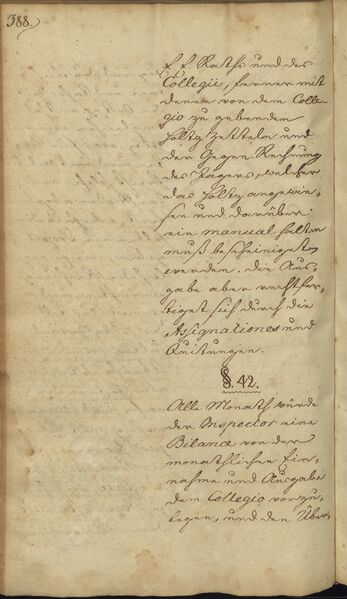 388.
E. E. Raths und des
Collegii, ferner mit
denen von dem Colle-
gio zu gebenden
Holtz Zetteln und
der Gegen Rechnung
des Jägers, welcher
das Holtz angewie-
sen und darüber
ein manual halten
muß bescheiniget
werden. die Aus-
gabe aber rechtfer-
tiget sich durch die
Assignationes und
Quitungen.
§. 42.
Alle Monath würde
der Inspector eine
Bilance von der
monathlichen Ein-
nahme und Ausgabe
dem Collegio vorzu-
legen, und den Über-